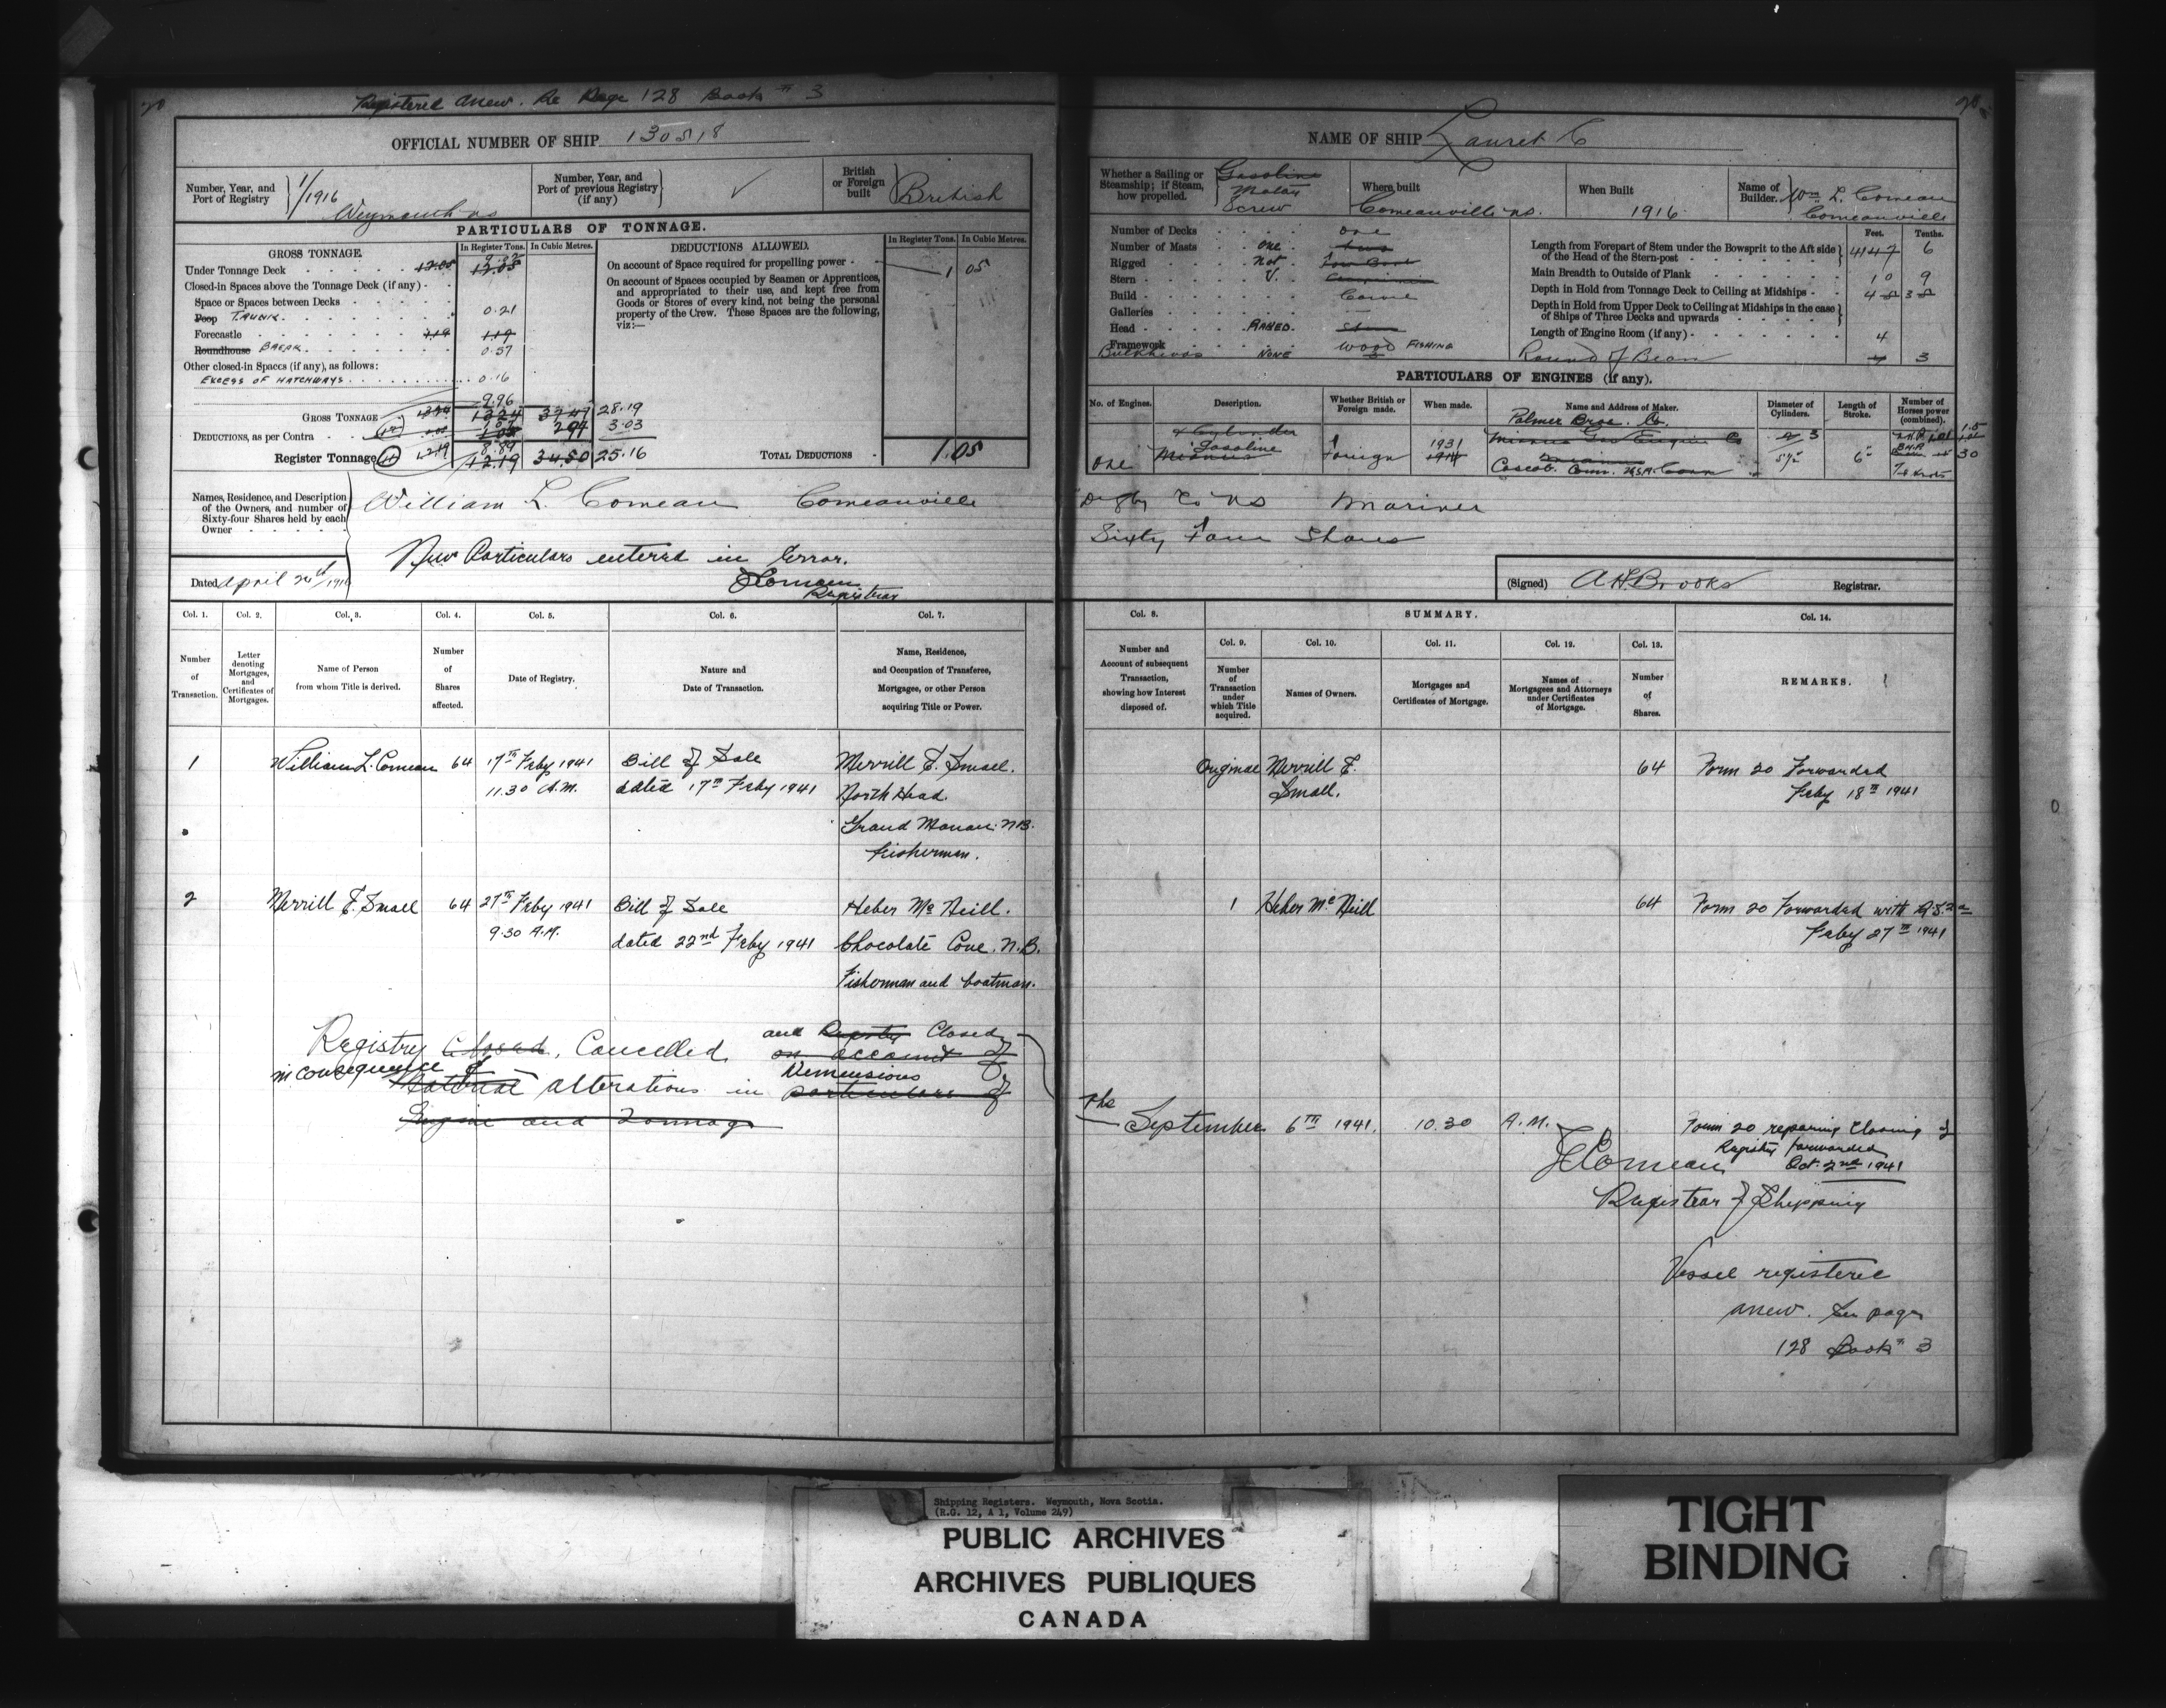 Registered anew. Re Page 128 Book # 3
OFFICIAL NUMBER OF SHIP 130518
Number, Year, and Port of Registry 1/1916 Weymouth NS
Number, Year, and Port of previous Registry (if any) ✓
British or Foreign built British
PARTICULARS OF TONNAGE.
GROSS TONNAGE.
In Register Tons. In Cubic Metres.
Under Tonnage Deck 12.05 12.05
Closed-in Spaces above the Tonnage Deck (if any)
Space or Spaces between Decks
Poop TRUNK 0.21
Forecastle 1.19 1.19
Roundhouse BREAK 0.37
Other closed-in Spaces (if any), as follows:
EXCESS OF HATCHWAYS 0.16
9.96
GROSS TONNAGE 13.24 13.24 37.47 28.19
DEDUCTIONS, as per Contra 1.05 2.97 3.03
Register Tonnage 12.19 12.19 34.50 25.16
DEDUCTIONS ALLOWED.
In Register Tons. In Cubic Metres.
On account of Space required for propelling power 1 05
On account of Spaces occupied by Seamen or Apprentices, and appropriated to their use, and kept free from Goods or Stores of every kind, not being the personal property of the Crew. These Spaces are the following, viz:—
TOTAL DEDUCTIONS 1.05
Names, Residence, and Description of the Owners, and number of Sixty-four Shares held by each Owner
William L. Comeau Comeauville
New Particulars entered in Error.
Registrar
Dated April 20th/1916
Col. 1. Col. 2. Col. 3. Col. 4. Col. 5. Col. 6. Col. 7.
Number of Transaction.
Letter denoting Mortgages, and Certificates of Mortgages.
Name of Person from whom Title is derived.
Number of Shares affected.
Date of Registry.
Nature and Date of Transaction.
Name, Residence, and Occupation of Transferee, Mortgages, or other Person acquiring Title or Power.
1 William L. Comeau 64 17th Feby 1941 Bill of Sale Merrill F. Small.
11.30 A.M. dated 17th Feby 1941 North Head.
Grand Manan. N.B.
Fisherman.
2 Merrill F. Small 64 27th Feby 1941 Bill of Sale Heber McNeill.
9.30 A.M. dated 22nd Feby 1941 Chocolate Cove. N.B.
Fisherman and boatman.
Registry Closed, Cancelled, and Registry Closed
on account of
in consequence of
Material alterations in Dimensions particulars of
Engine and Tonnage
NAME OF SHIP Lauret C
Whether a Sailing or Steamship; if Steam, how propelled. Gasoline Motor Screw
Where built Comeauville NS.
When Built 1916
Name of Builder. Wm L. Comeau Comeauville
Number of Decks one
Number of Masts one two
Rigged not
Stern V.
Build Carvel
Galleries —
Head RAKED. Stem
Framework WOOD FISHING
Bulkheads NONE
Feet. Tenths.
Length from Forepart of Stem under the Bowsprit to the Aft side of the Head of the Stern-post 6
Main Breadth to Outside of Plank 10 9
Depth in Hold from Tonnage Deck to Ceiling at Midships 4
Depth in Hold from Upper Deck to Ceiling at Midships in the case of Ships of Three Decks and upwards
Length of Engine Room (if any) 4
Round of Beam 3
PARTICULARS OF ENGINES (if any).
No. of Engines. Description. Whether British or Foreign made. When made. Name and Address of Maker. Diameter of Cylinders. Length of Stroke. Number of Horses power (combined).
Palmer Bros. Co.
2 Cylinder
One Gasoline Mianus Foreign 1931 1914 Mianus Gas Engine Co
Coscob. Conn. U.S.A. 6" 30
Digby Co NS Mariner
Sixty Four Shares
(Signed) A H Brooks Registrar.
Col. 8. SUMMARY. Col. 14.
Col. 9. Col. 10. Col. 11. Col. 12. Col. 13.
Number and Account of subsequent Transaction, showing how Interest disposed of.
Number of Transaction under which Title acquired.
Names of Owners.
Mortgages and Certificates of Mortgage.
Names of Mortgagees and Attorneys under Certificates of Mortgage.
Number of Shares.
REMARKS.
Original Merrill F. Small. 64 Form 20 Forwarded
Feby 18th 1941
1 Heber McNeill 64 Form 20 Forwarded with
Feby 27th 1941
The September 6th 1941. 10.30 A.M.
Form 20 Closing of
Registry forwarded
Oct. 2nd 1941
Comeau
Registrar of Shipping
Vessel registered
anew. See page
128 Book # 3
Shipping Registers. Weymouth, Nova Scotia.
(R.G. 12, A 1, Volume 249)
PUBLIC ARCHIVES
ARCHIVES PUBLIQUES
CANADA
TIGHT
BINDING